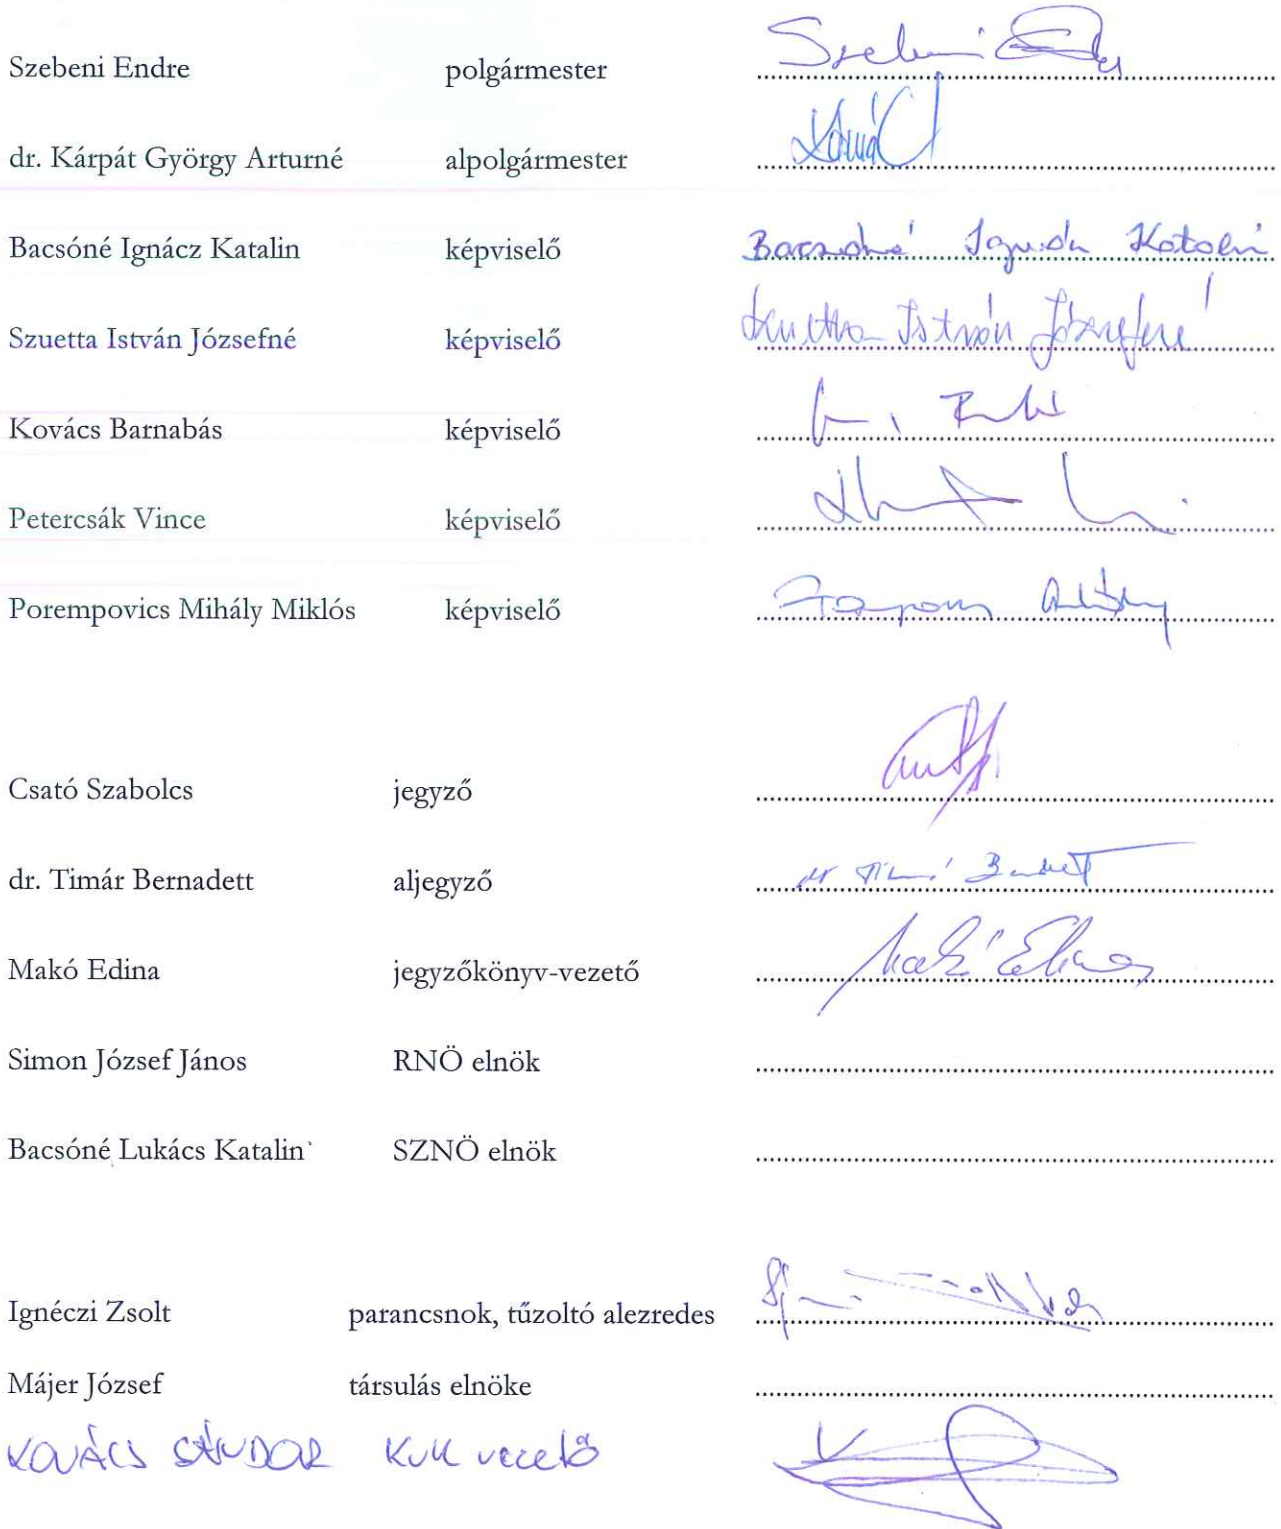 Szebeni Endre polgármester Szebeni Endre
dr. Kárpát György Arturné alpolgármester
Bacsóné Ignácz Katalin képviselő Bacsóné Ignácz Katalin
Szuetta István Józsefné képviselő Szuetta István Józsefné
Kovács Barnabás képviselő
Petercsák Vince képviselő
Porempovics Mihály Miklós képviselő
Csató Szabolcs jegyző
dr. Timár Bernadett aljegyző dr Timár Bernadett
Makó Edina jegyzőkönyv-vezető Makó Edina
Simon József János RNÖ elnök
Bacsóné Lukács Katalin SZNÖ elnök
Ignéczi Zsolt parancsnok, tűzoltó alezredes
Májer József társulás elnöke
KOVÁCS SÁNDOR KVK vezető